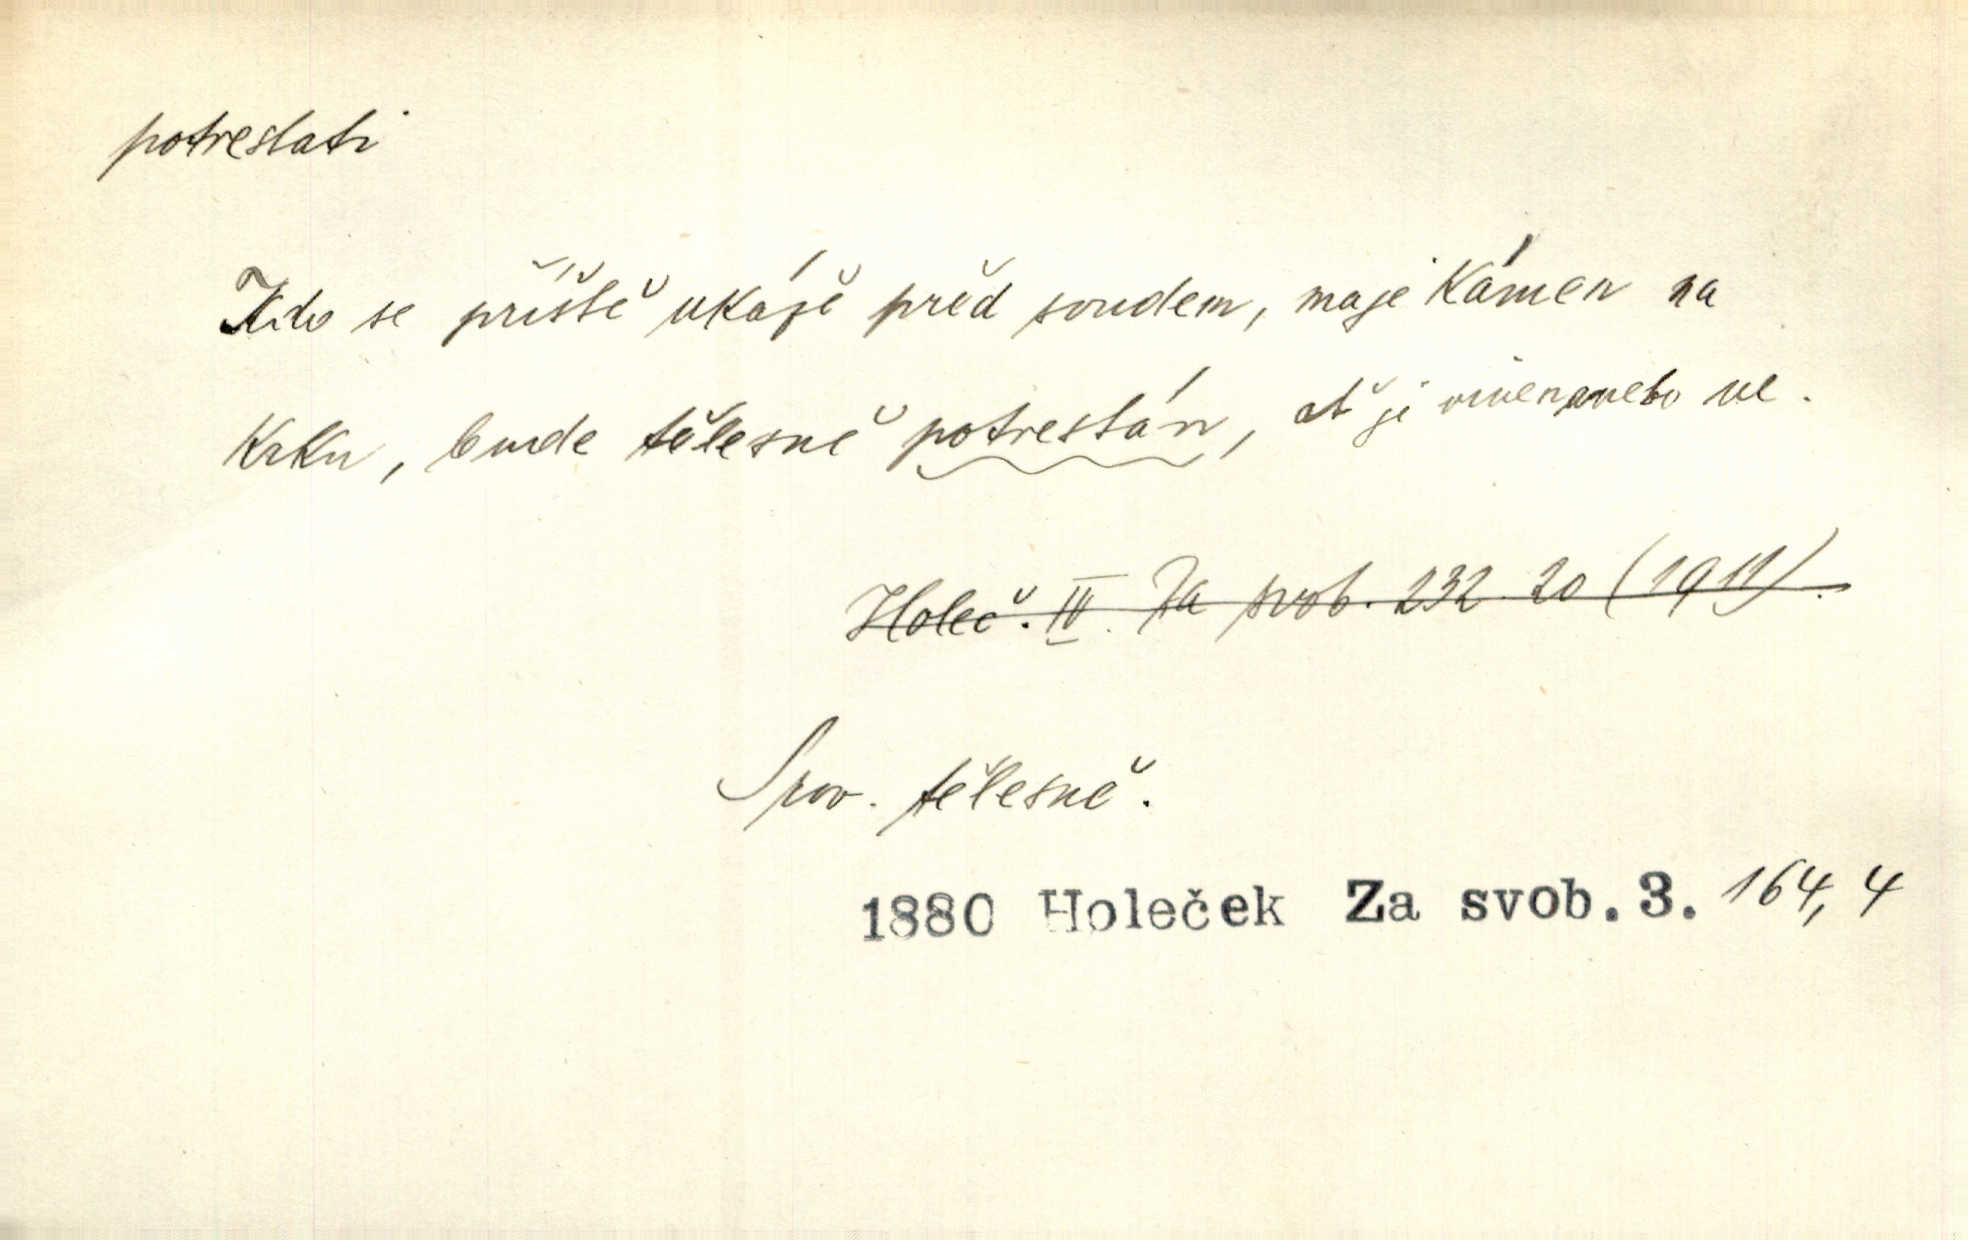 potrestati
Kdo se příště ukáže před soudem, maje kámen na
krku, bude tělesně potrestán, ať je vinen anebo ne.
Holeč. IV. Za svob. 232 20 (1911).
Srov. tělesně.
1880 Holeček Za svob. 3. 164, 4